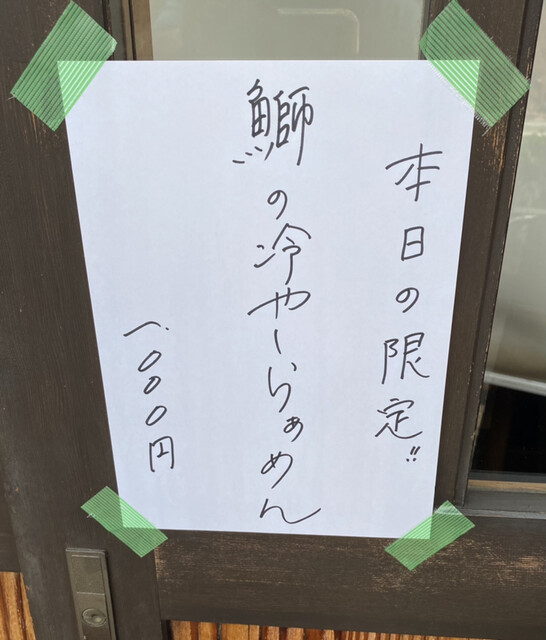 本日の限定!!
鰤の冷やしらぁめん
一.000円